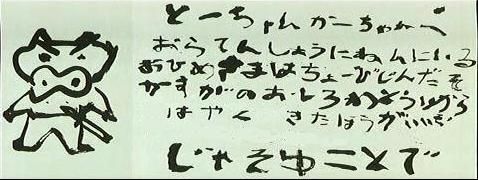 とーちゃん かーちゃんへ
おらてんしょうにねんにいる
おひめさまはちょーびじんだぞ
かすがのおしろかどうぴら
はやく きたほうがいいぞ
じゃそゆことで